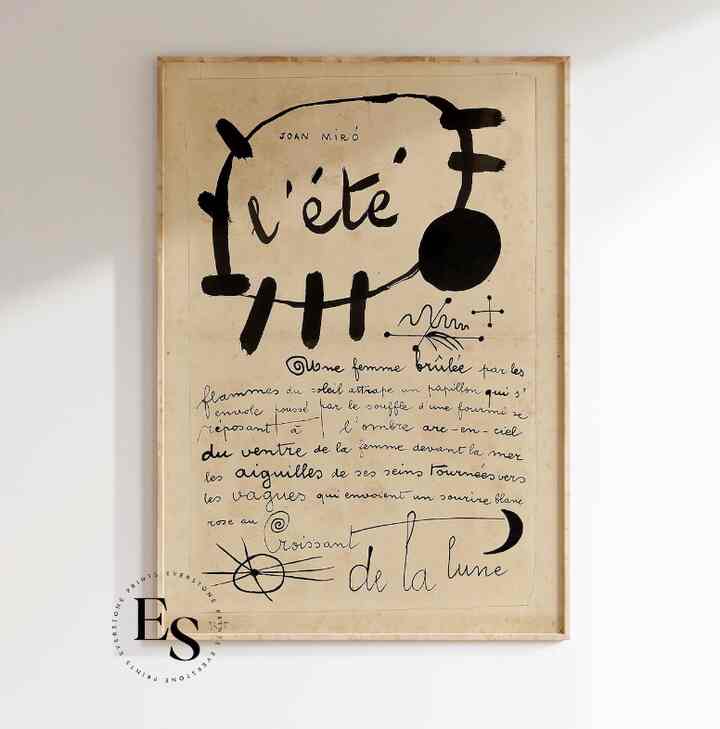 JOAN MIRÓ
l'été
Une femme brûlée par les
flammes du soleil attrape un papillon qui s'
envole poussé par le souffle d'une fourmi se
réposant à l'ombre arc-en-ciel
du ventre de la femme devant la mer
les aiguilles de ses seins tournées vers
les vagues qui envoient un sourire blanc
rose au
Croissant
de la lune
ES
EVERSTONE PRINTS EVERSTONE PRINTS EVERSTONE PRINTS